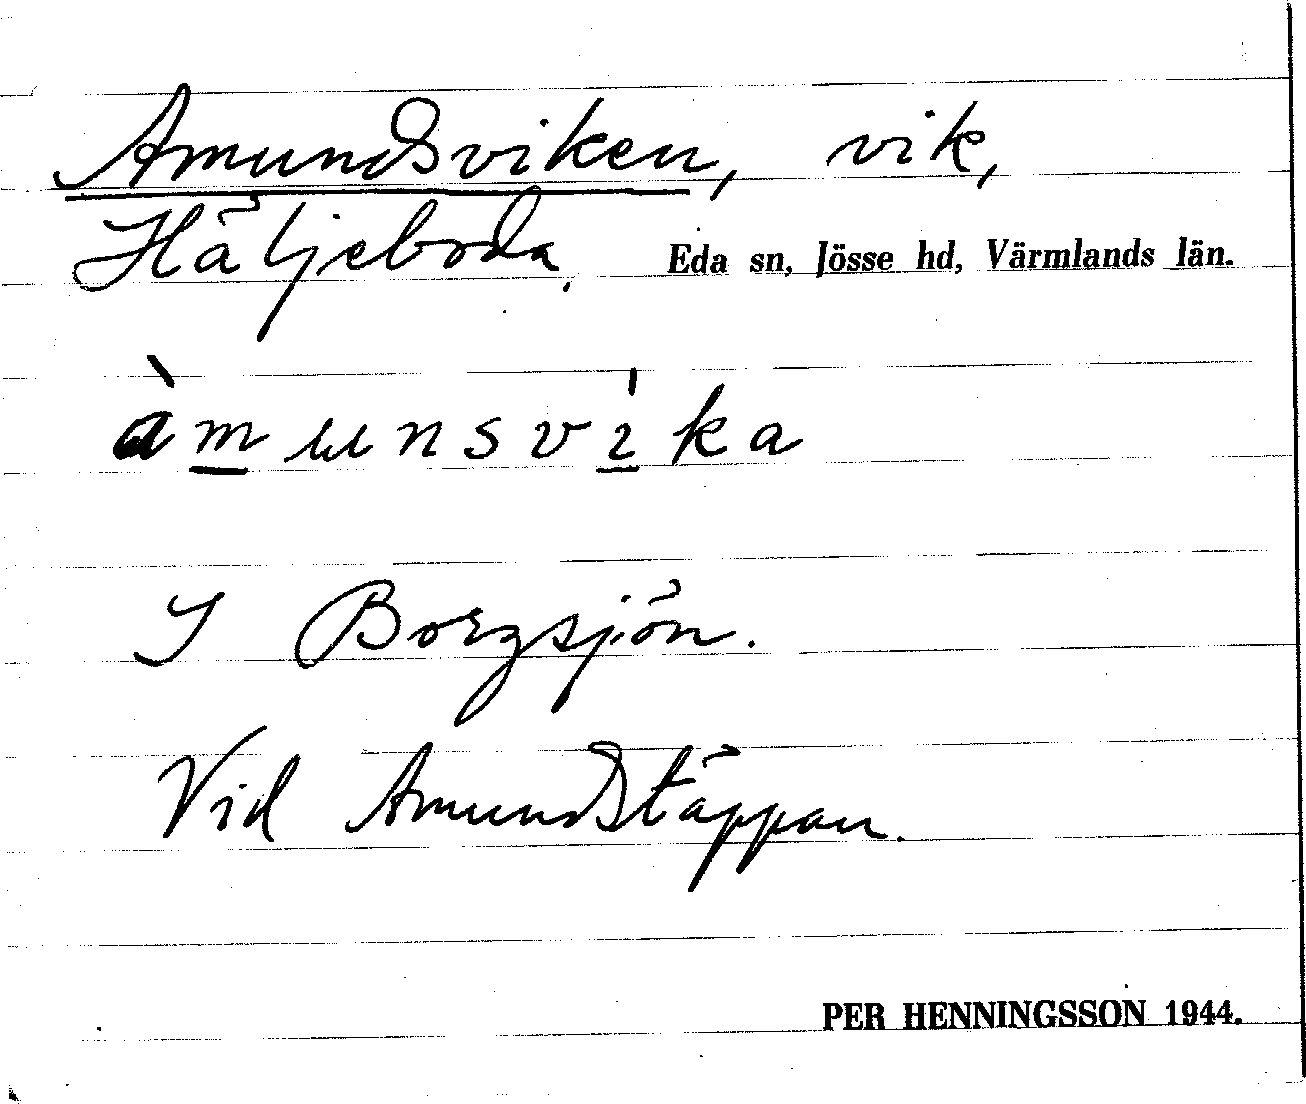 Amundsviken, vik,
Häljeboda. Eda sn, Jösse hd, Värmlands län.
àmunsvíka
I Borgsjön.
Vid Amundstäppan.
PER HENNINGSSON 1944.